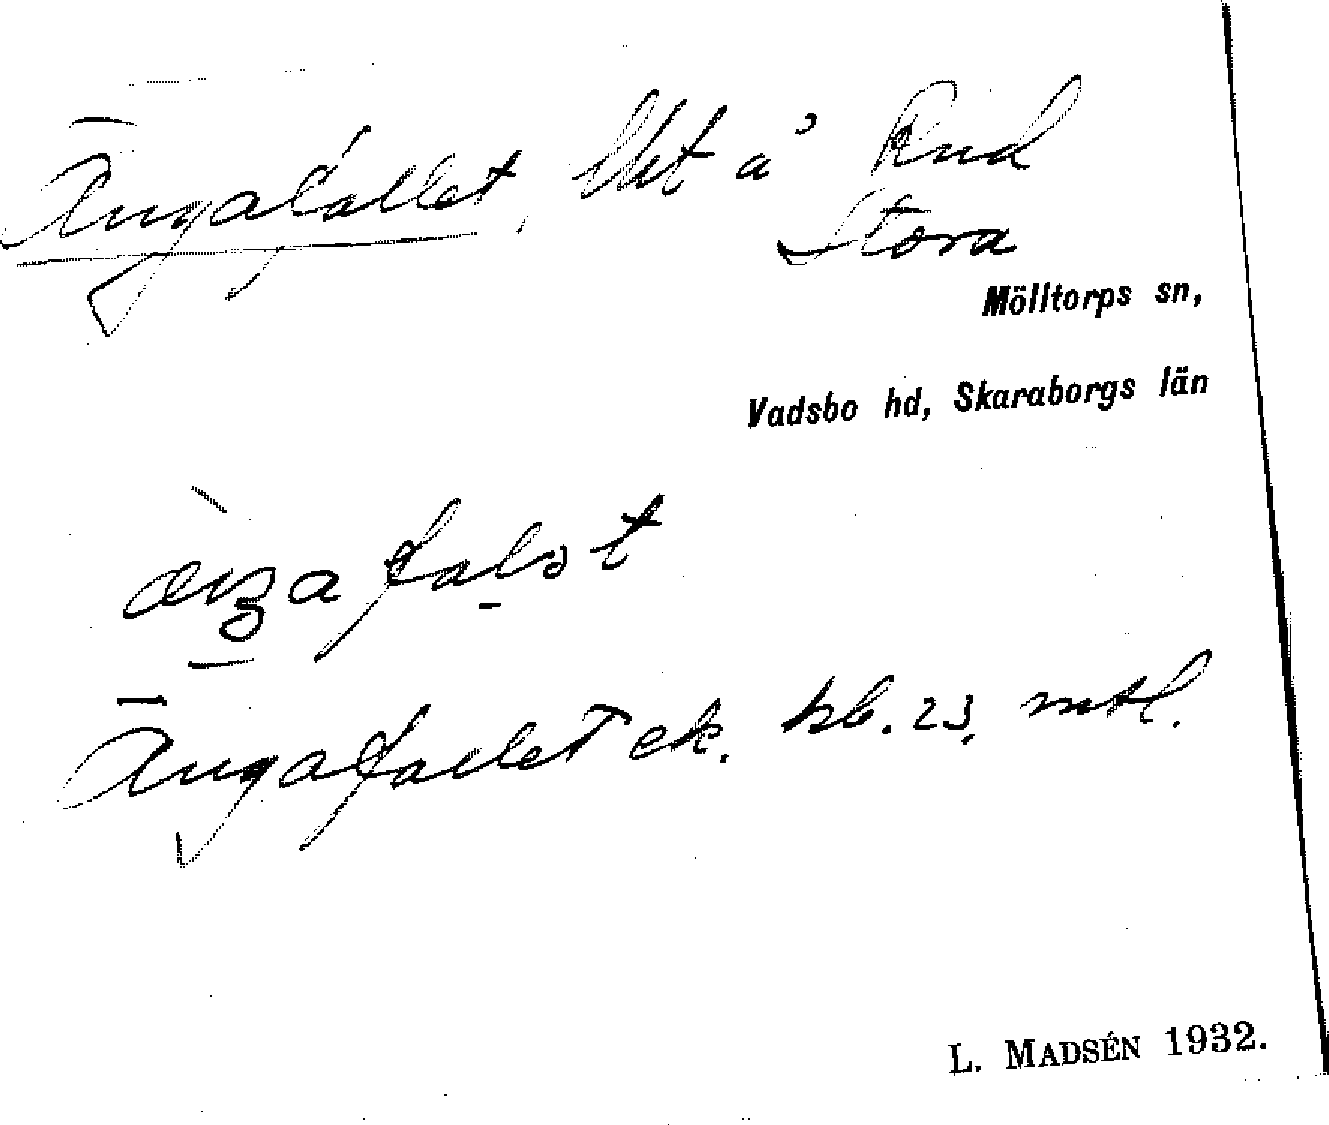 Ängafallet, lht å Rud
Stora
Mölltorps sn,
Vadsbo hd, Skaraborgs län
Ängafallet ek. hb. 23, mtl.
L. MADSÉN 1932.